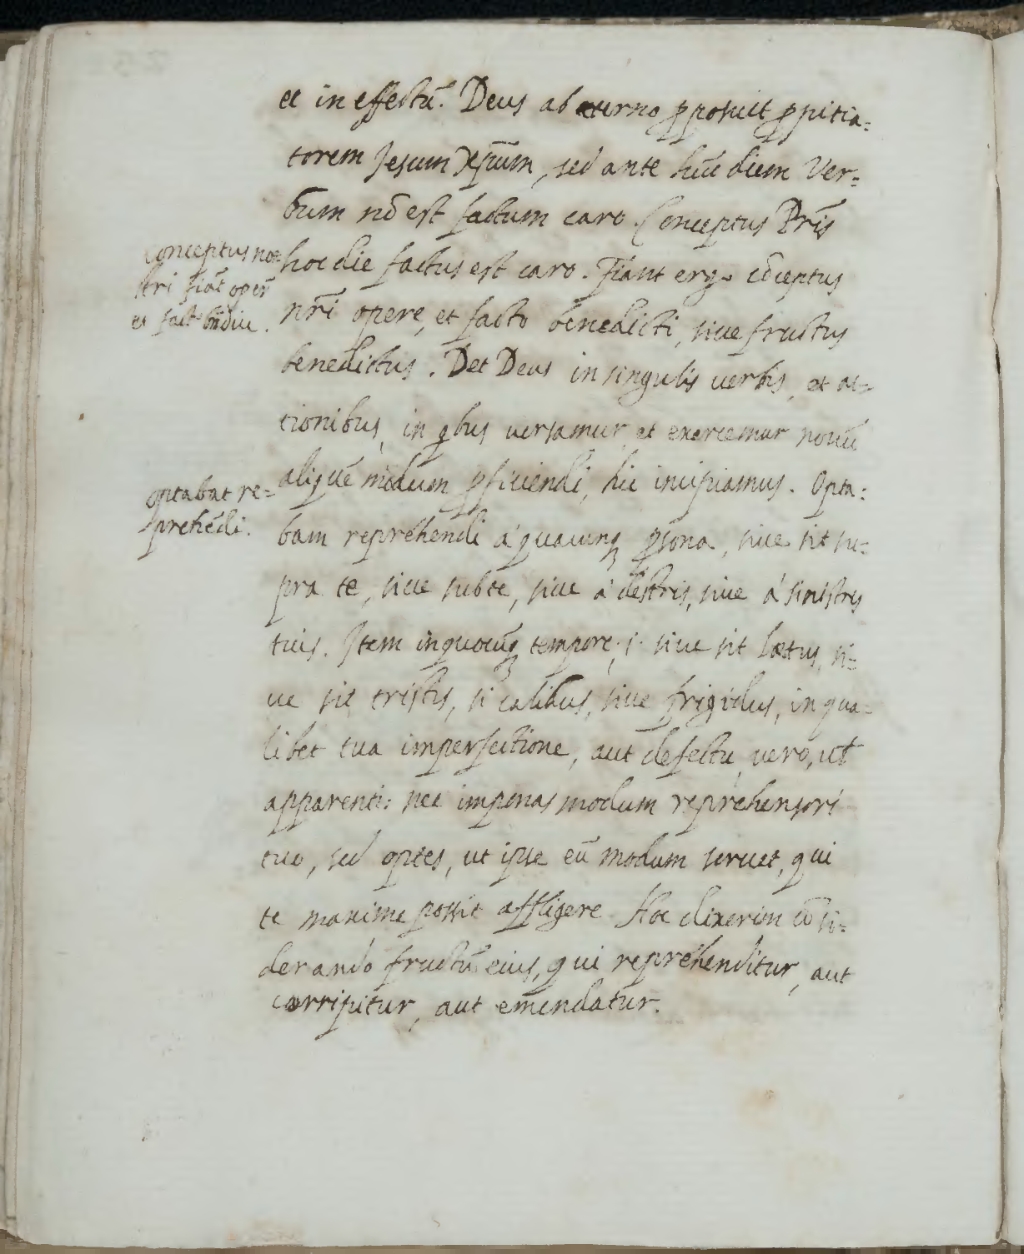 et in effectū. Deus ab æterno ꝓposuit ꝓpitia=
torem Jesum Xp̄um, sed ante hūc diem Ver=
bum nō est factum caro. Conceptus Pr̄is
hoc die factus est caro. Fiant ergo cōceptus
nr̄i opere, et facto benedicti, siue fructus
benedictus. Det Deus in singulis verbis, et ac=
tionibus, in qbus versamur, et exercemur nouū
aliquē modum ꝓficiendi, hic incipiamus. Opta=
bam reprehendi á quacunqꝫ ꝑsona, siue sit su=
pra te, siue sub te, siue á dextris, siue á sinistris
tuis. Item in quocūqꝫ tempore, siue sit lætus, si=
ue sit tristis, si calidus, siue frigidus, in qua=
libet tua imperfectione, aut defectu vero, ut
apparenti: nec imponas modum reprehensori
tuo, sed optes, ut ipse eū modum seruet, qui
te maxime possit affligere. Hoc dixerim cōsi=
derando fructū eius, qui reprehenditur, aut
corripitur, aut emendatur.
Conceptus no=
stri fiāt oper
et facto
optabat re=
prehēdi.